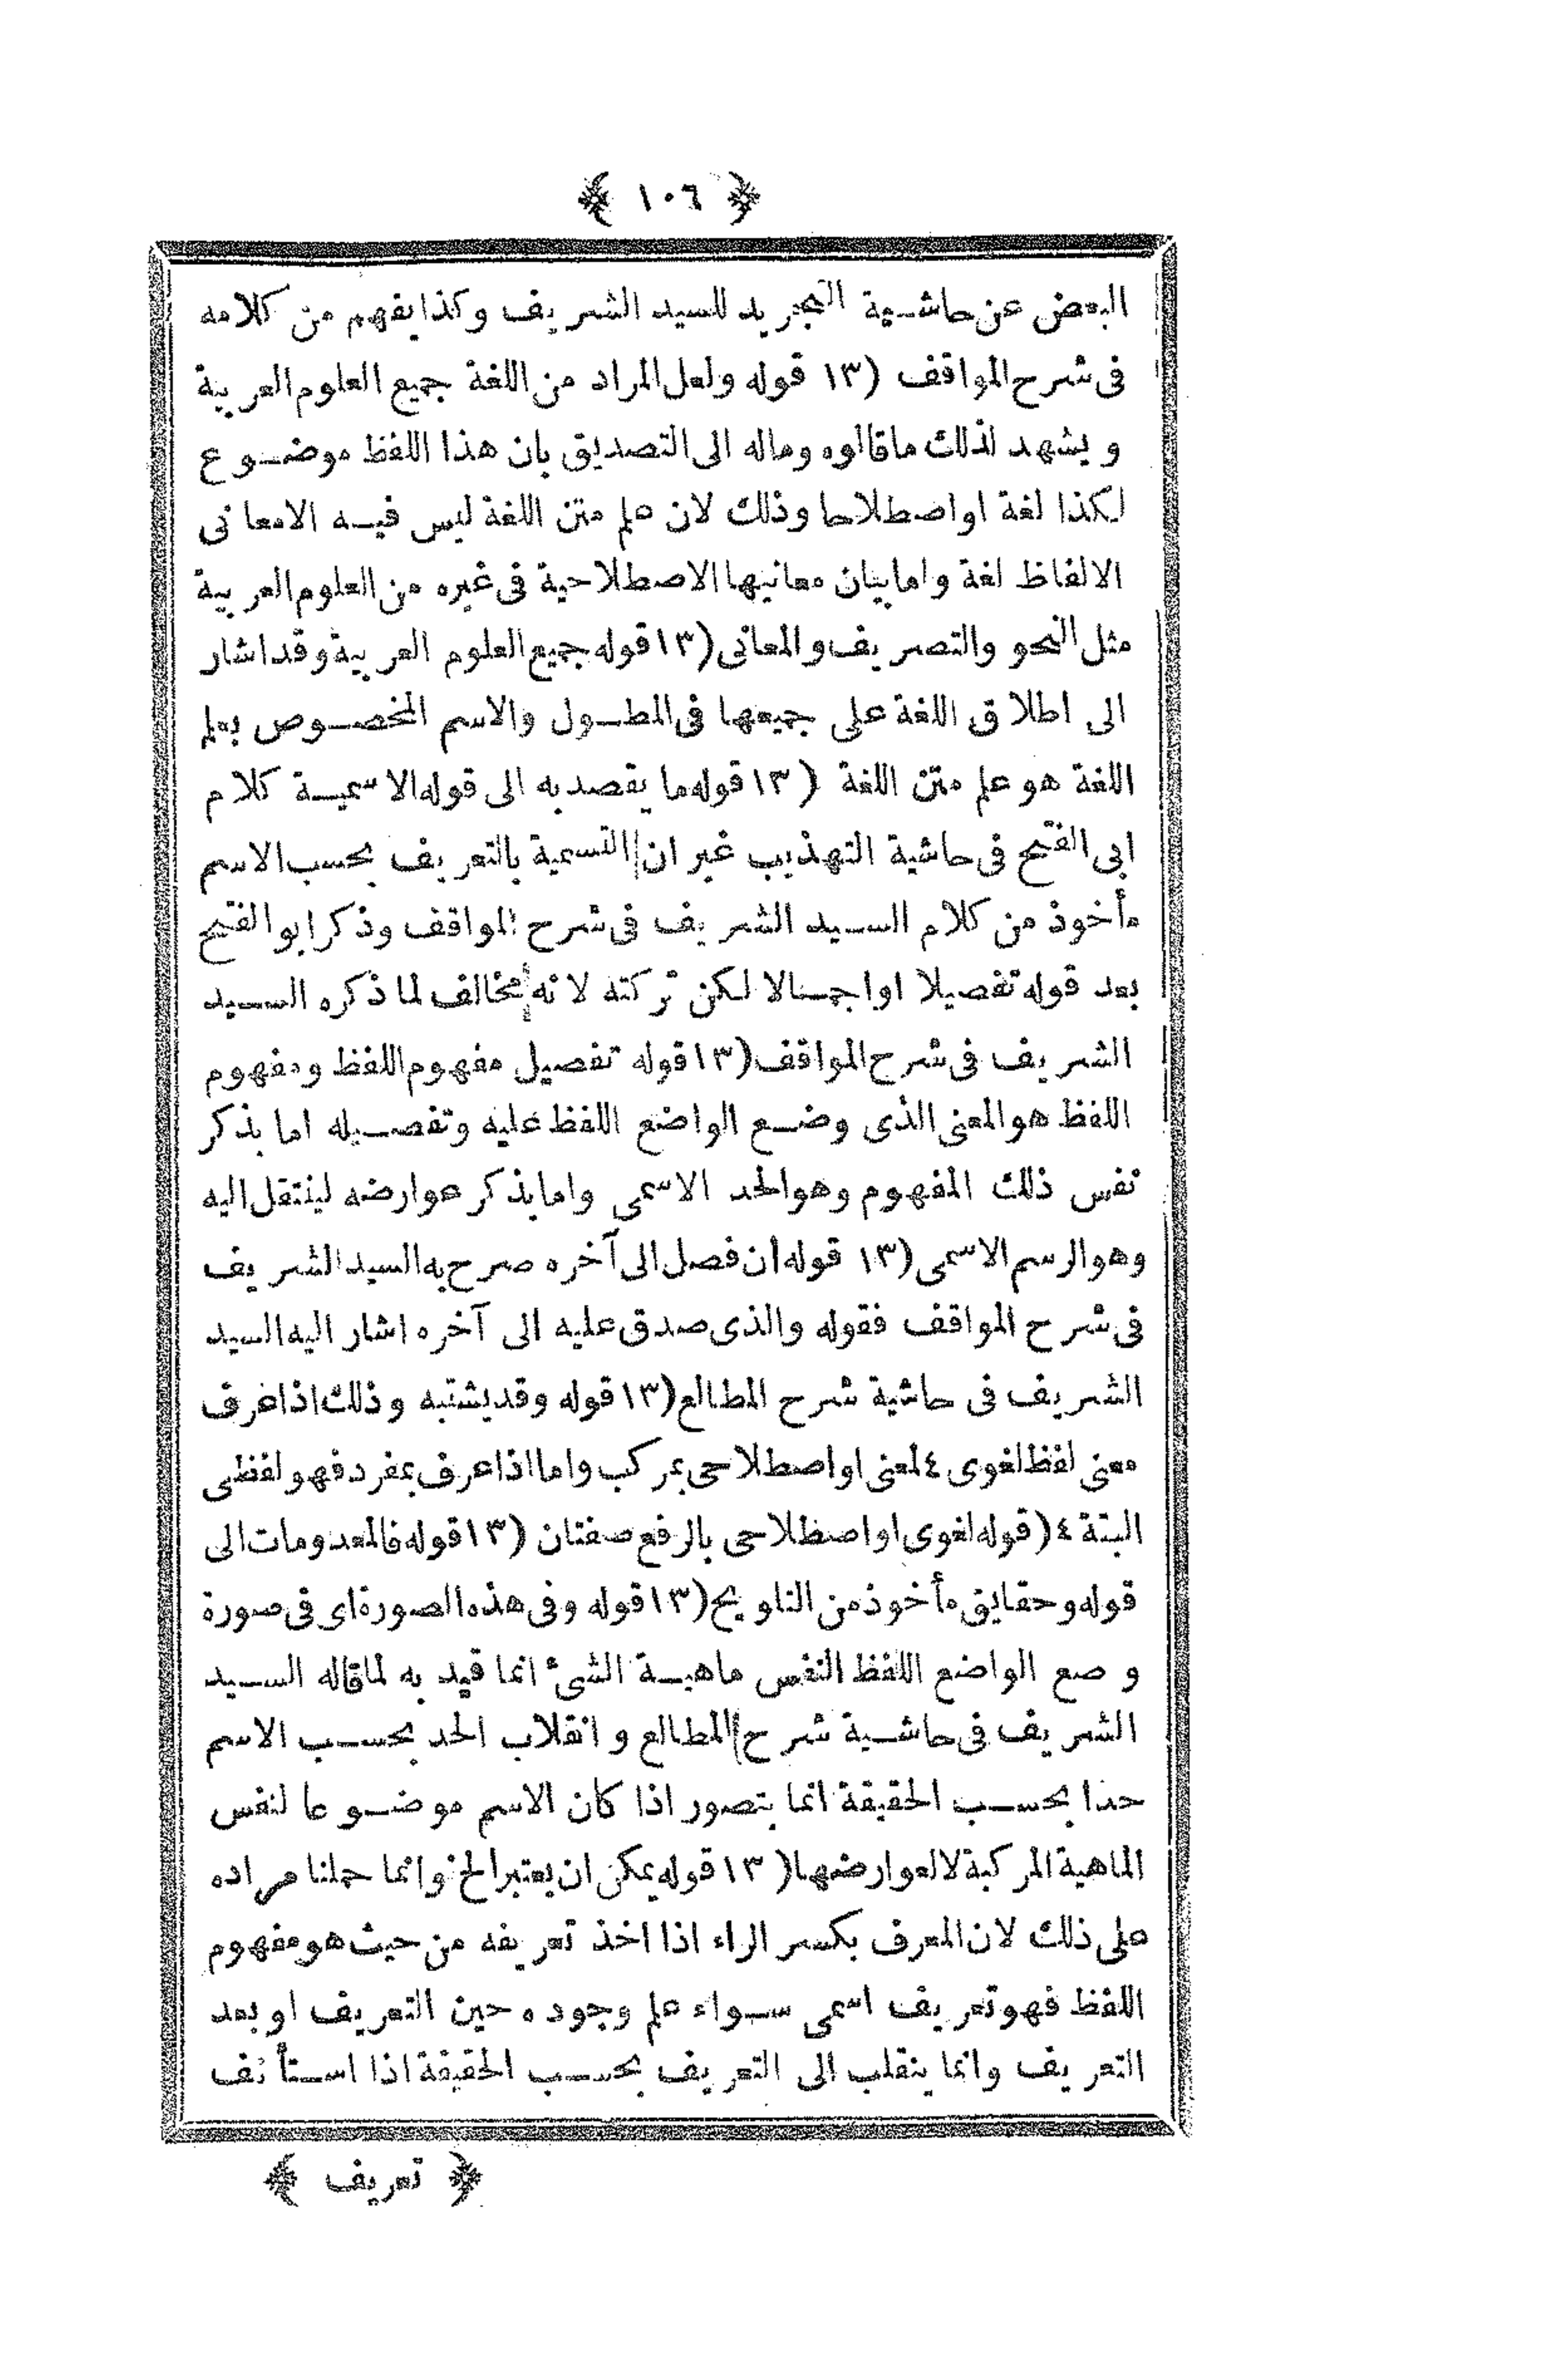 ﴿ ١٠٦ ﴾
البعض عن حاشية التجريد للسيد الشريف وكذا يفهم من كلامه
فى شرح المواقف (١٣ قوله ولعل المراد من اللغة جميع العلوم العربية
ويشهد لذلك ما قالوه وماله الى التصديق بان هذا اللفظ موضوع
لكذا لغة او اصطلاحا وذلك لان علم متن اللغة ليس فيه الا معانى
الالفاظ لغة واما بيان معانيها الاصطلاحية فى غيره من العلوم العربية
مثل النحو والتصريف والمعانى (١٣ قوله جميع العلوم العربية وقد اشار
الى اطلاق اللغة على جميعها فى المطول والاسم المخصوص بعلم
اللغة هو علم متن اللغة (١٣ قوله ما يقصد به الى قوله الاسمية كلام
ابى الفتح فى حاشية التهذيب غير ان التسمية بالتعريف بحسب الاسم
مأخوذ من كلام السيد الشريف فى شرح المواقف وذكر ابو الفتح
بعد قوله تفصيلا او اجمالا لكن تركته لانه مخالف لما ذكره السيد
الشريف فى شرح المواقف (١٣ قوله تفصيل مفهوم اللفظ ومفهوم
اللفظ هو المعنى الذى وضع الواضع اللفظ عليه وتفصيله اما بذكر
نفس ذلك المفهوم وهو الحد الاسمى واما بذكر عوارضه لينتقل اليه
وهو الرسم الاسمى (١٣ قوله ان فصل الى آخره صرح به السيد الشريف
فى شرح المواقف فقوله والذى صدق عليه الى آخره اشار اليه السيد
الشريف فى حاشية شرح المطالع (١٣ قوله وقد يشتبه وذلك اذا عرف
معنى لفظ لغوى ٤ لمعنى او اصطلاحى بمركب واما اذا عرف بمفرد فهو لفظى
البتة ٤ (قوله لغوى او اصطلاحى بالرفع صفتان (١٣ قوله فالمعدومات الى
قوله وحقايق مأخوذ من التلويح (١٣ قوله وفى هذه الصورة اى فى صورة
وصع الواضع اللفظ النفس ماهية الشئ انما قيد به لما قاله السيد
الشريف فى حاشية شرح المطالع وانقلاب الحد بحسب الاسم
حدا بحسب الحقيقة انما يتصور اذا كان الاسم موضوعا لنفس
الماهية المركبة لا لعوارضها (١٣ قوله يمكن ان يعتبر الخ وانما حملنا مراده
على ذلك لان المعرف بكسر الراء اذا اخذ تعريفه من حيث هو مفهوم
اللفظ فهو تعريف اسمى سواء علم وجوده حين التعريف او بعد
التعريف وانما ينقلب الى التعريف بحسب الحقيقة اذا استأنف
﴿ تعريف ﴾